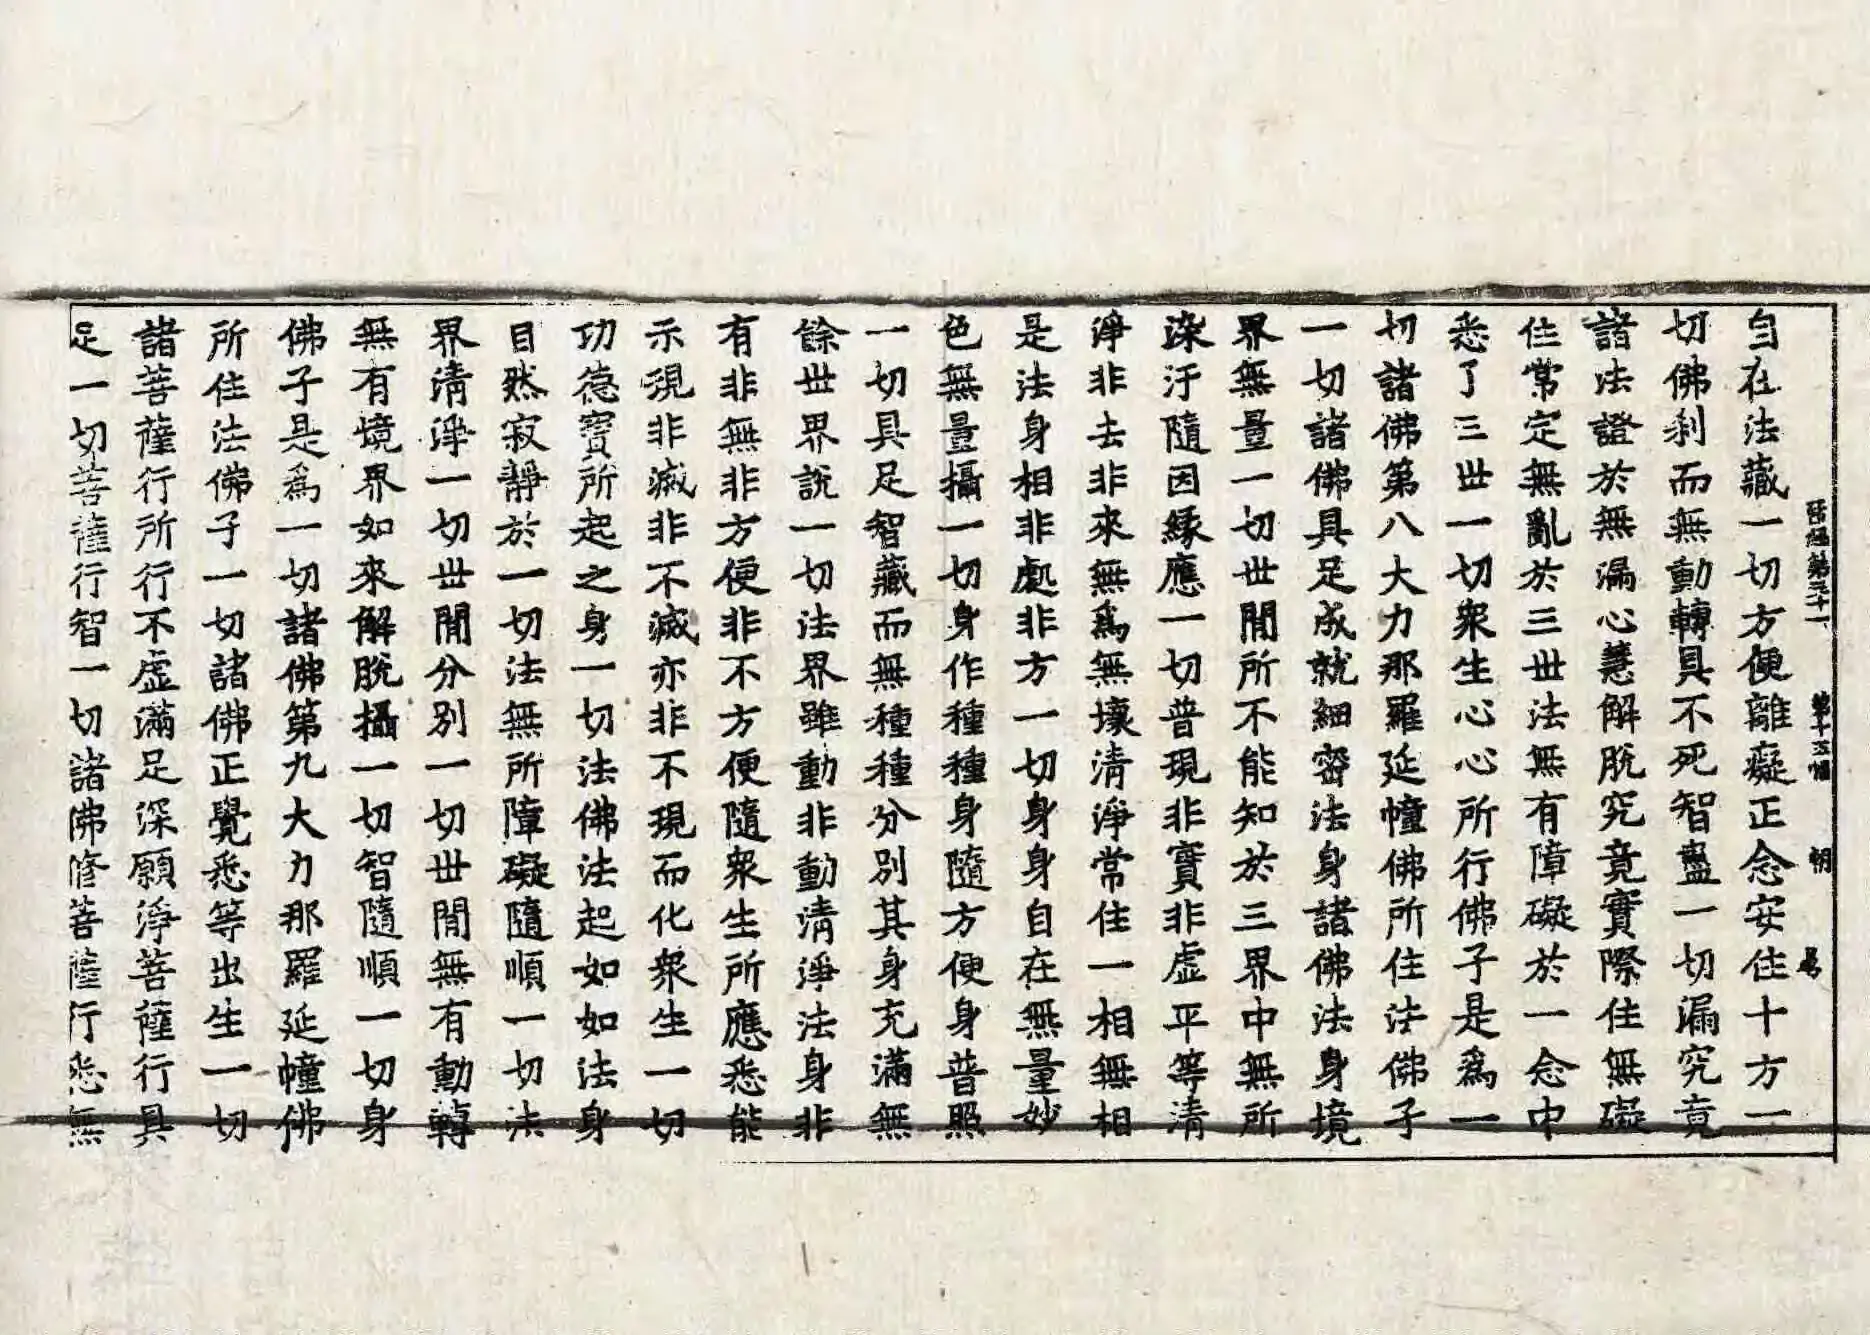 晉經第三十一 第十五幅 朝
自在法藏一切方便離癡正念安住十方一
切佛刹而無動轉具不死智盡一切漏究竟
諸法證於無漏心慧解脫究竟實際住無礙
住常定無亂於三世法無有障礙於一念中
悉了三世一切衆生心心所行佛子是爲一
切諸佛第八大力那羅延幢佛所住法佛子
一切諸佛具足成就細密法身諸佛法身境
界無量一切世閒所不能知於三界中無所
染汙隨因緣應一切普現非實非虛平等清
淨非去非來無爲無壞清淨常住一相無相
是法身相非處非方一切身身自在無量妙
色無量攝一切身作種種身隨方便身普照
一切具足智藏而無種種分別其身充滿無
餘世界說一切法界雖動非動清淨法身非
有非無非方便非不方便隨衆生所應悉能
示現非滅非不滅亦非不現而化衆生一切
功德寶所起之身一切法佛法起如如法身
自然寂靜於一切法無所障礙隨順一切法
界清淨一切世閒分別一切世閒無有動轉
無有境界如來解脫攝一切智隨順一切身
佛子是爲一切諸佛第九大力那羅延幢佛
所住法佛子一切諸佛正覺悉等出生一切
諸菩薩行所行不虛滿足深願淨菩薩行具
足一切菩薩行智一切諸佛修菩薩行悉無